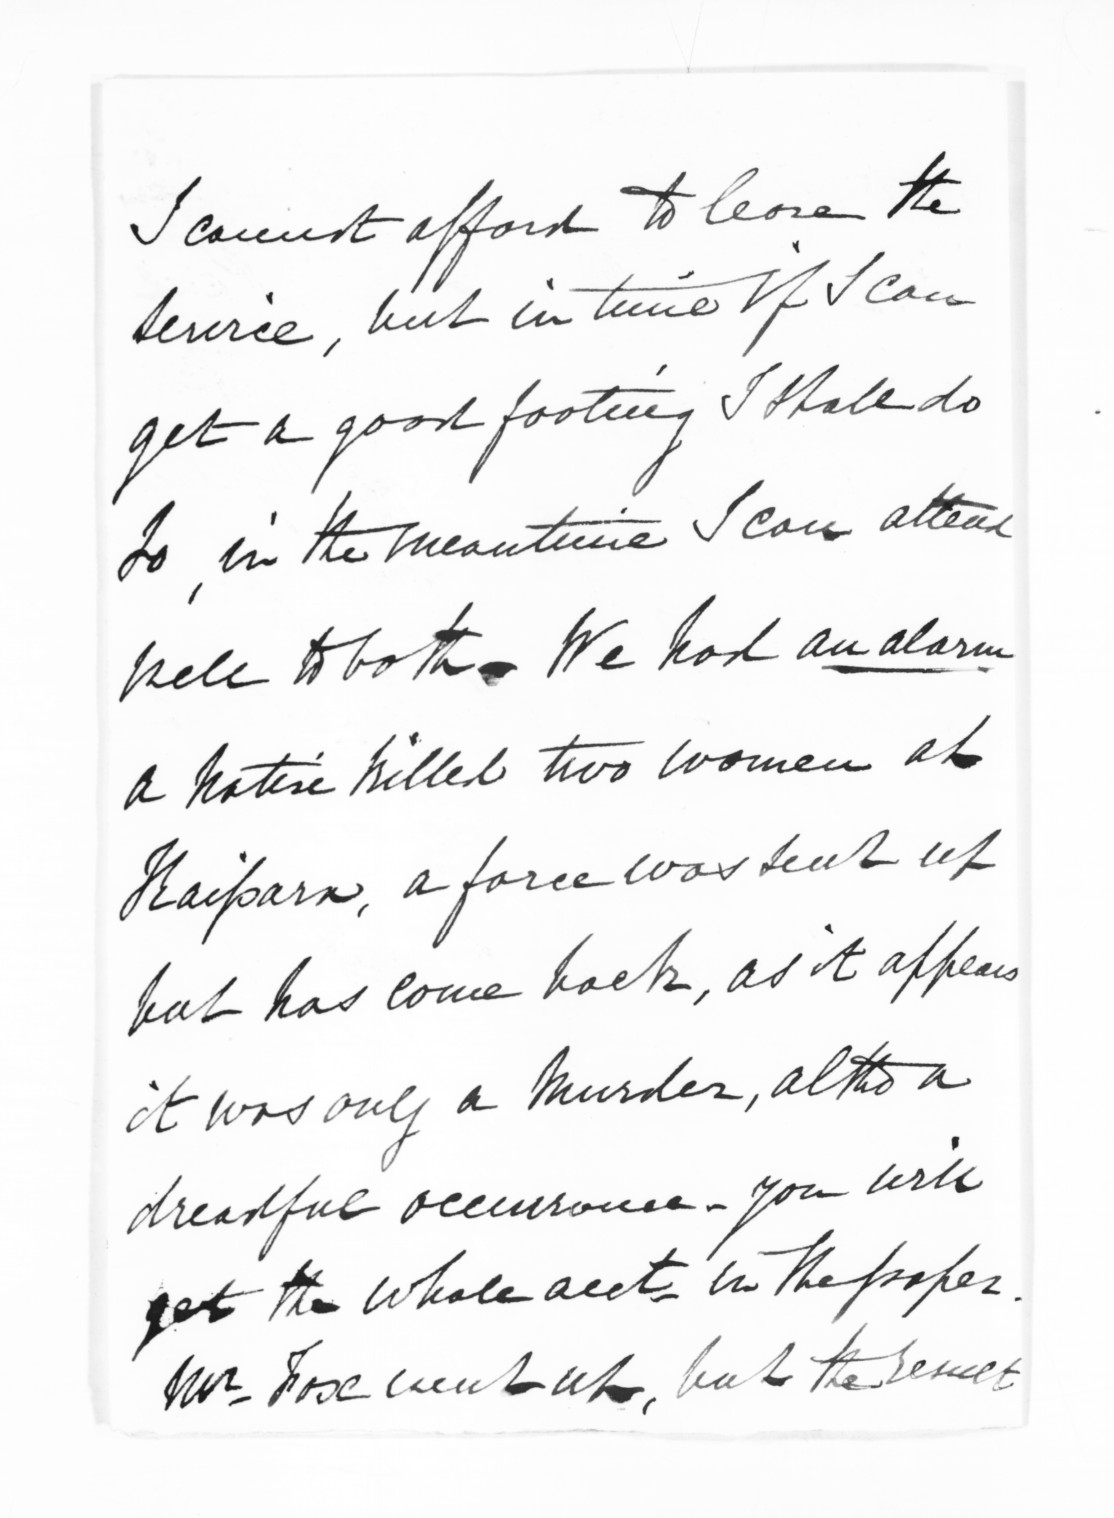 I cannot afford to leave the
service, but in time if I can
get a good footing I shall do
so, in the meantime I can attend
well to both. We had an alarm
a native killed two women at
Kaipara, a force was sent up
but has come back, as it appears
it was only a murder, altho a
dreadful occurance - you will
get the whole acct. in the paper.
Mr. Fox went up, but the result